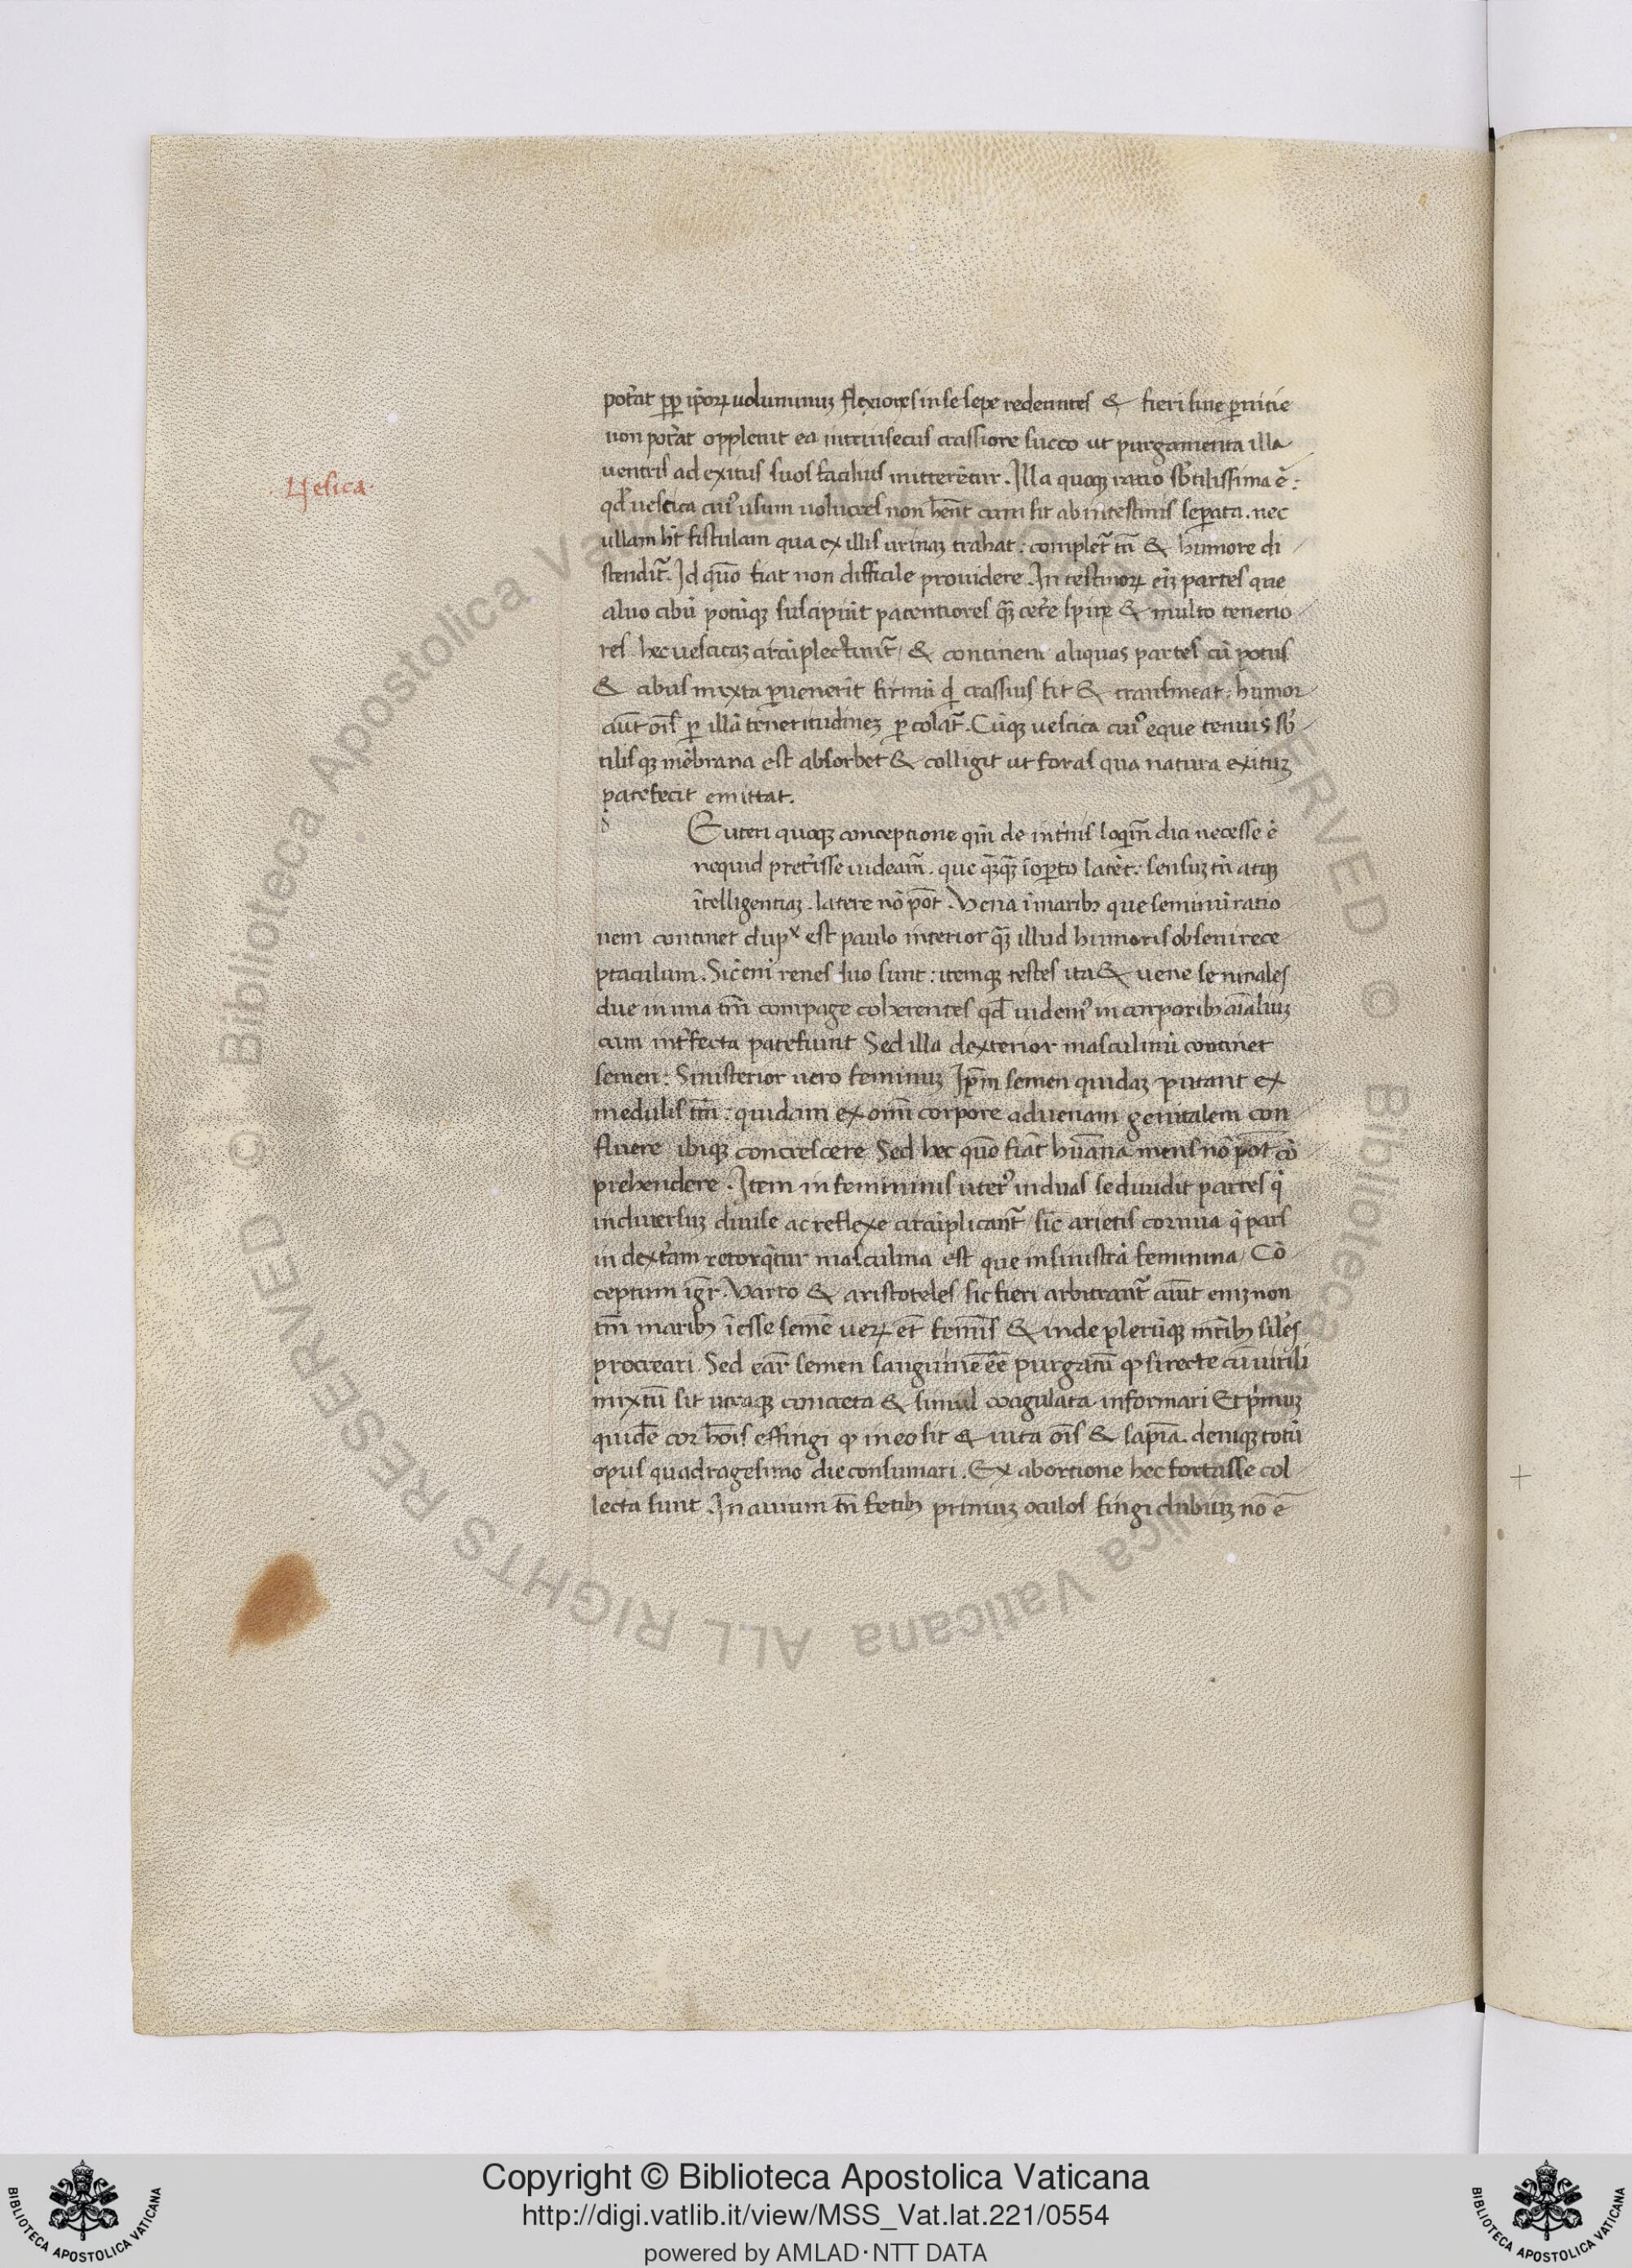 poterat pp ipoꝝ uoluminuꝫ flexiones in se sepe redeuntes & fieri sine pernitie
non poterat oppleuit ea intrinsecus crassiore succo ut purgamenta illa
uentris ad exitus suos facilius mitterētur. Illa quoqꝫ ratio sbtilissima ē:
Uesica
qd uescica cuiꝰ usum uolucres non hēnt cum sit ab intestinis seperata. nec
ullam ht fistulam qua ex illis urinaꝫ trahat: completr tn & humore di
stendit̃. Id quō fiat non difficile prouidere. Intestinoꝝ eiꝫ partes que
aluo cibū potūqꝫ suscipiūt patentiores qꝫ cetere spire & multo tenerio
res hec uescicaꝫ circūplectunt̃ & continent aliquas partes cū potus
& cibus mixta peruenerit firmū qd crassius fit & transmeat. humor
aut oīs per illā teneritudineꝫ percolat̃. Cūqꝫ uescica cuiꝰ eque tenuis sb
tilisqꝫ mēbrana est absorbet & colligit ut foras qua natura exituꝫ
patefecit emittat.
d
E uteri quoqꝫ conceptione qm̄ de internis loqm̄ dici necesse ē
nequid preterisse uideam̃. que qꝫqꝫ ī operto latēt: sensuꝫ tn̄ atqꝫ
ītelligentiaꝫ latere nō pōt. Vena ī maribꝫ que seminiū ratio
nem continet dupˣ est paulo interior qꝫ illud humoris obsceni rece
ptaculum. Sic eni renes duo sunt: itemqꝫ testes ita & uene seminales
due in una tm̄ compage coherentes qd uidemꝰ in corporibꝫ aīaliuꝫ
cum interfecta patefiunt Sed illa dexterior masculinū continet
semen: Sinisterior uero femininuꝫ Ipm̄ semen quidaꝫ putant ex
medulis tm̄: quidam ex omī corpore ad uenam genitalem con
fluere ibiqꝫ concrescere Sed hec quō fiāt huāna mens nō pōt cō
prehendere. Item in femininis uterꝰ in duas se diuidit partes q
in diuersuꝫ diuise ac reflexe circūplicant̃ sic arietis cornua q pars
in dextram retorqtur masculina est que in sinistrā feminina. Cō
ceptum igr. Varro & aristoteles sic fieri arbitrant̃ aiūt eniꝫ non
tm̄ maribꝫ īesse semē ueꝝ et femīs & inde plerūqꝫ mribꝫ siles
procreari. Sed eaꝝ semen sanguinē eē purgatū qꝫ si recte cū uirili
mixtū sit utraqꝫ concreta & simul coagulata informari Et primuꝫ
quidē cor hoīs effingi qꝫ in eo sit & uita oīs & sapīa. deniqꝫ totū
opus quadragesimo die consumari. Ex abortione hec fortasse col
lecta sunt. In auium tn̄ fetibꝫ primuꝫ oculos fingi dubiuꝫ nō ē
Copyright © Biblioteca Apostolica Vaticana
http://digi.vatlib.it/view/MSS_Vat.lat.221/0554
powered by AMLAD·NTT DATA
BIBLIOTECA APOSTOLICA VATICANA
BIBLIOTECA APOSTOLICA VATICANA
© Biblioteca Apostolica Vaticana ALL RIGHTS RESERVED
© Biblioteca Apostolica Vaticana ALL RIGHTS RESERVED